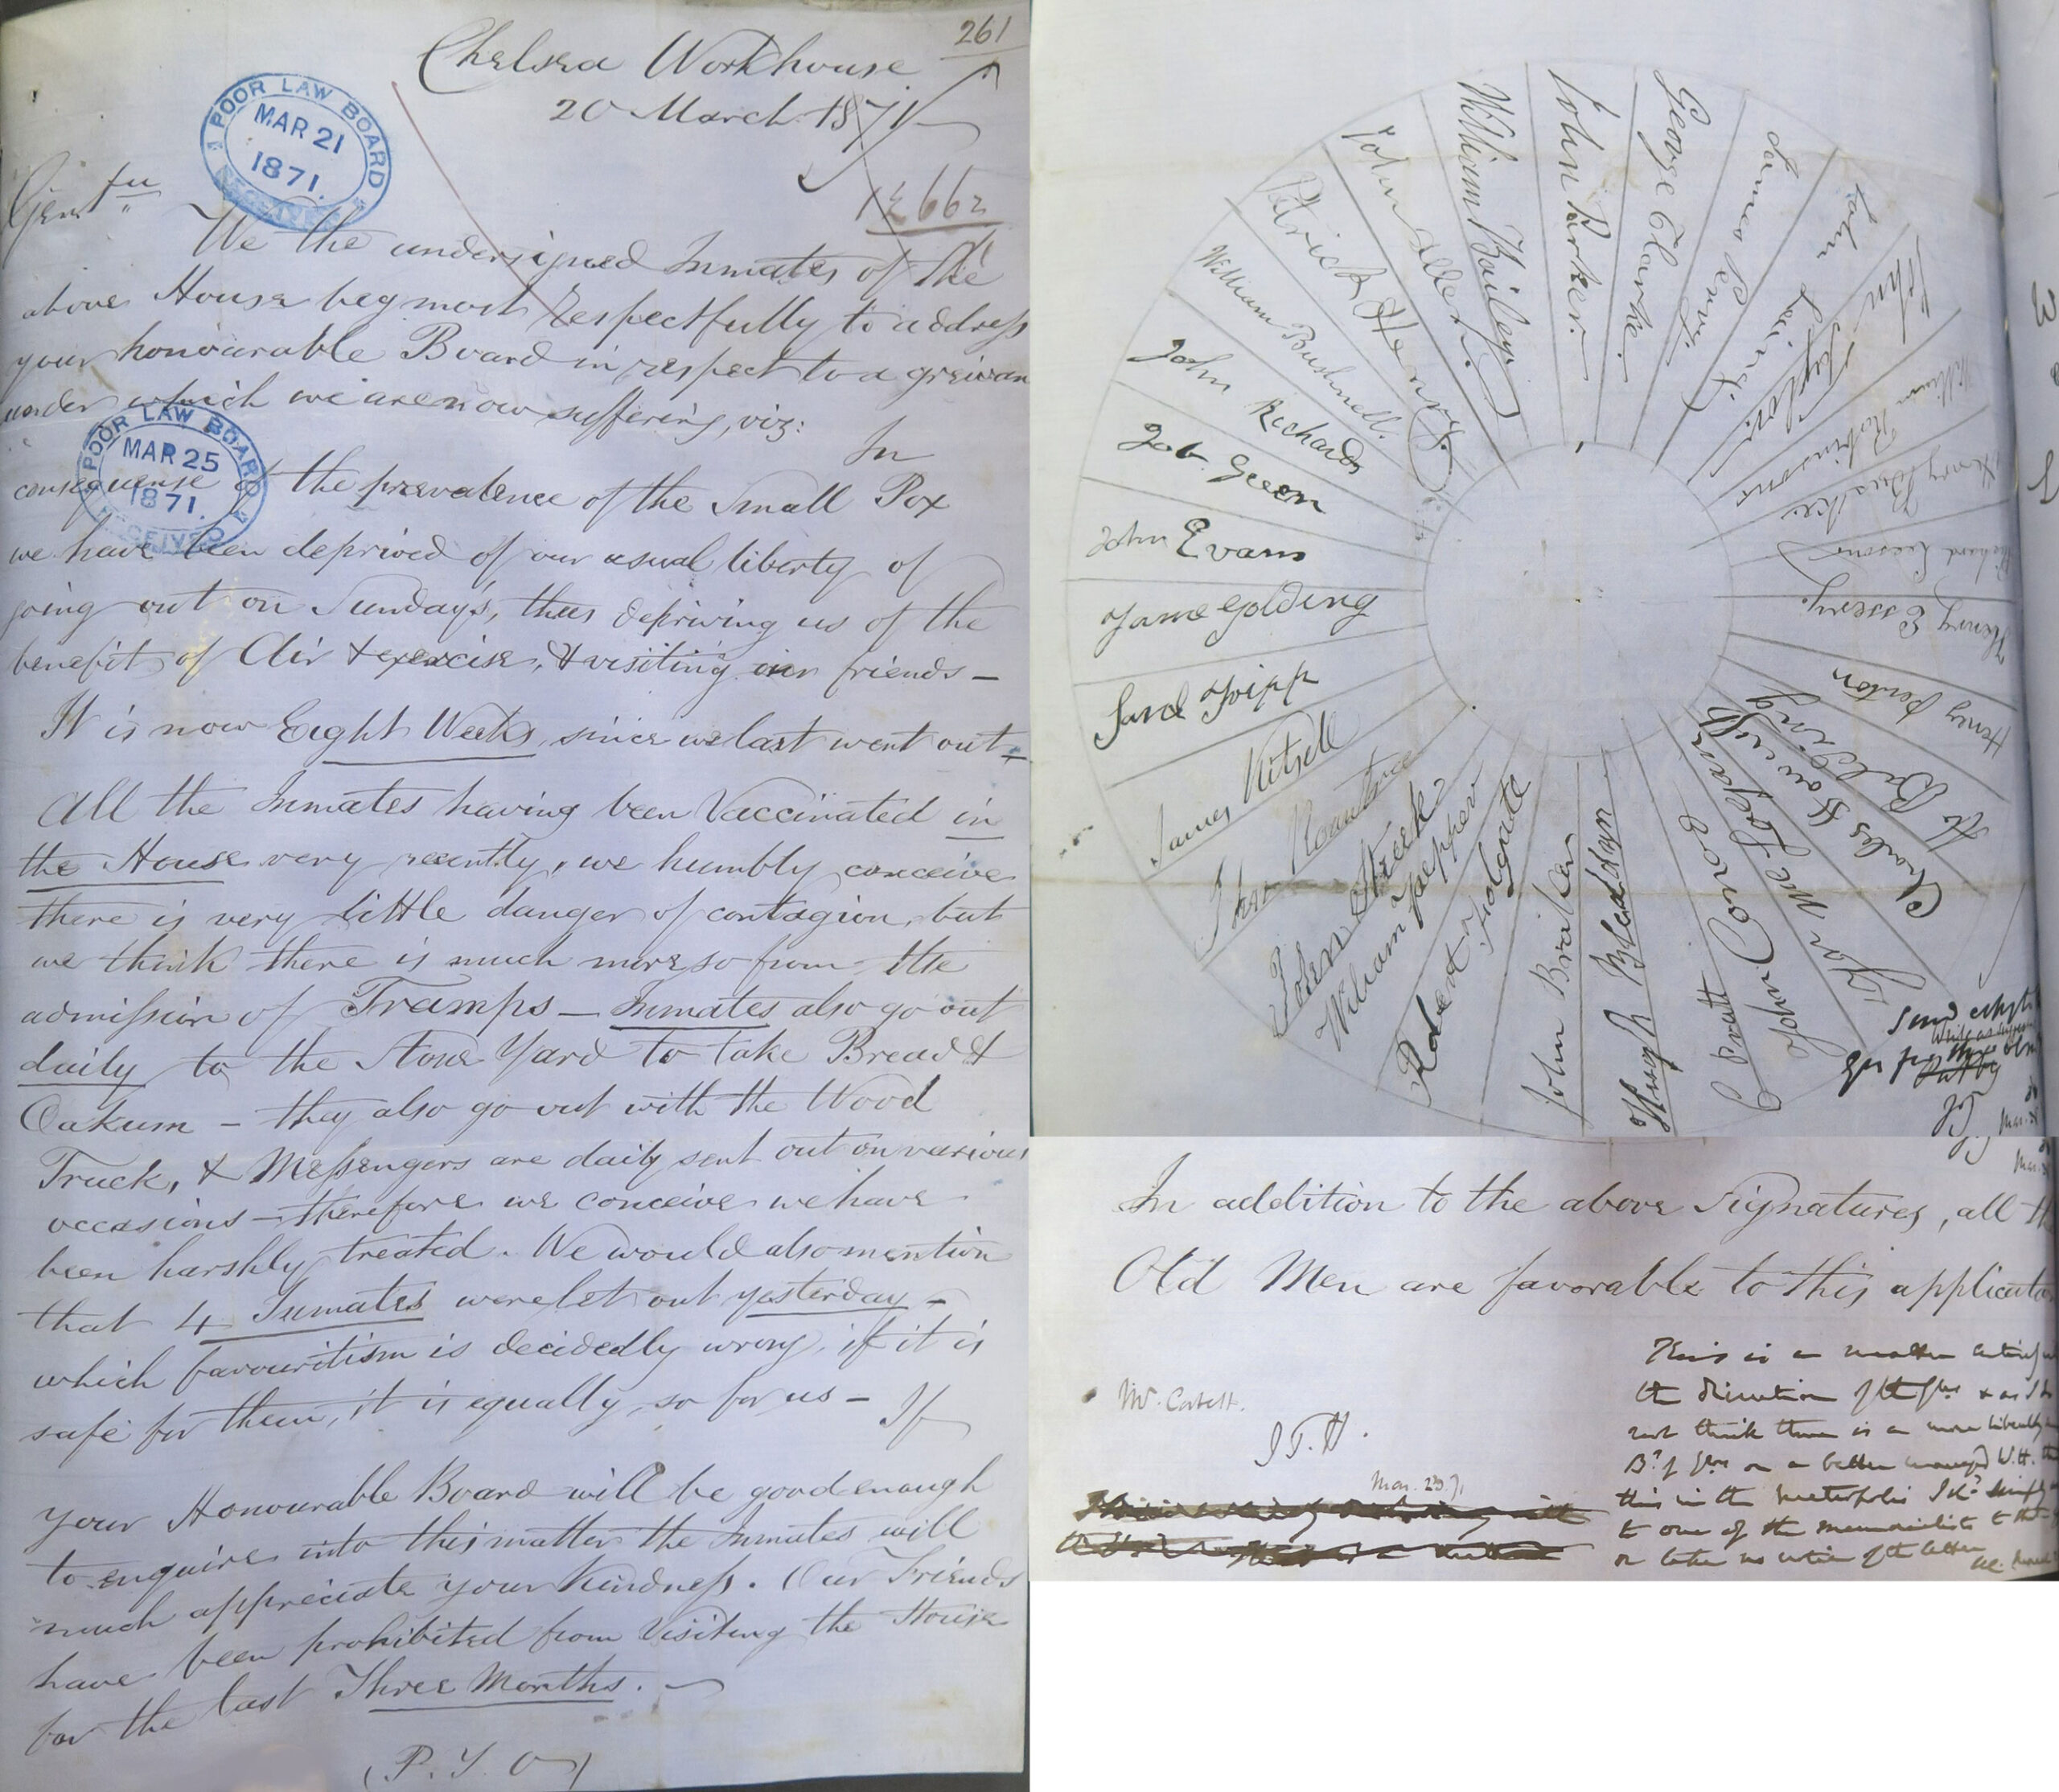 261
Chelsea Workhouse
20 March 1871
POOR LAW BOARD
MAR 21
1871.
RECEIVED
Gentn
We the undersigned Inmates of the
above House beg most respectfully to address
your honourable Board in respect to a greivan
under which we are now suffering, viz:
In
POOR LAW BOARD
MAR 25
1871.
RECEIVED
consequense of the prevalence of the Small Pox
we have been deprived of our usual liberty of
going out on Sundays, thus depriving us of the
benefit of Air & exercise, & visiting our friends —
It is now Eight Weeks, since we last went out —
All the Inmates having been Vaccinated in
the House very recently, we humbly conceive
there is very little danger of contagion, but
we think there is much more so from the
admission of Tramps — Inmates also go out
daily to the Stone Yard to take Bread &
Oakum — they also go out with the Wood
Truck, & Messengers are daily sent out on various
occasions — therefore we conceive we have
been harshly treated. We would also mention
that 4 Inmates were let out yesterday —
which favouritism is decidedly wrong, if it is
safe for them, it is equally so for us — If
your Honourable Board will be good enough
to enquire into this matter the Inmates will
much appreciate your kindness. Our Friends
have been prohibited from Visiting the House
for the last Three Months. —
(P. T. O)
John Parker.
George Clarke.
James Perry.
John Laing
John Taylor
William Robinson
Henry
Richard
Henry Essery.
Henry Fenton
H Belding
Charles
John
J Pratt
Hugh Bleaddyn
John Brailey
Robert Holgate
William Pepper
John Street
John Rountree
James Kitsell
Saml Tripp
Jame Golding
John Evans
Job Green
John Richards
William Bushnell.
Patrick Henry.
John Allen.
William Bailey.
In addition to the above Signatures, all th
Old Men are favorable to this applicatio
Mr. Catell.
J.T.H.
Mar. 23. 71
This is a matter entirely
the discretion of the Gdns & as I do
not think there is a more liberally
Bd of Gdns or a better managed W.H. tha
this in the metropolis I shd simply
to one of the memorialists to that
or take no notice of the letter